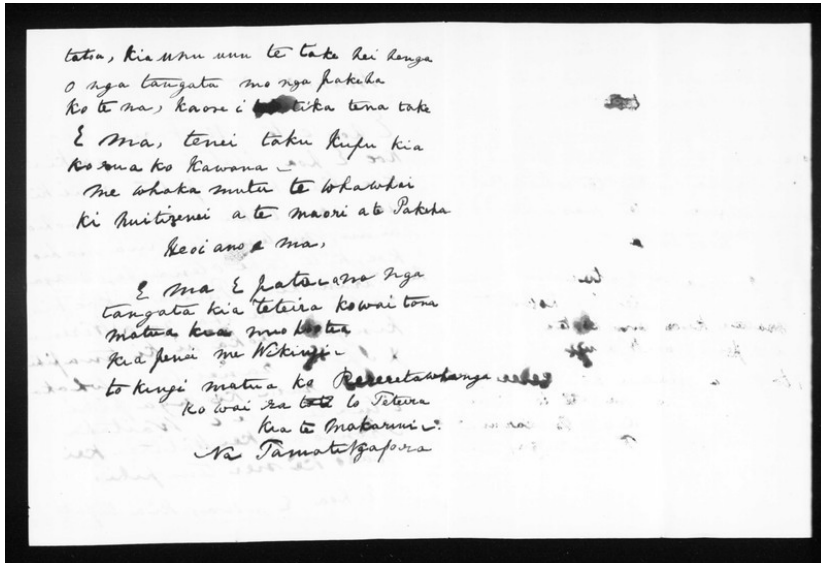 tatoa, kia unu unu te take hei henga
o nga tangata mo nga pakeha
ko te na, kaore i tika tena take
E ma, tenei taku kupu kia
korua ko Kawana –
me whaka mutu te whawhai
ki huitizenei a te maori a te Pakeha
Heoi ano e ma,
E ma E patai ano nga
tangata kia teteira kowai tona
matua kia mohiotia
kia penei me Wikingi –
to kingi matua ko Rereretawhanga
ko wai ra to Teteira
Kia te Makarini
Na Tamatingapora